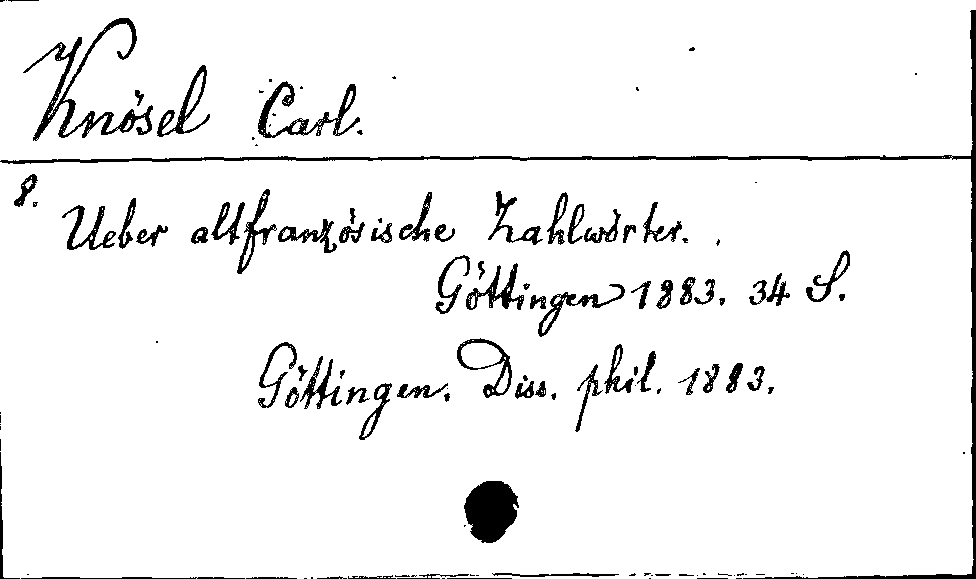 Knösel Carl.
8.
Ueber altfranzösische Zahlwörter.
Göttingen 1883. 34 S.
Göttingen. Diss. phil. 1883.